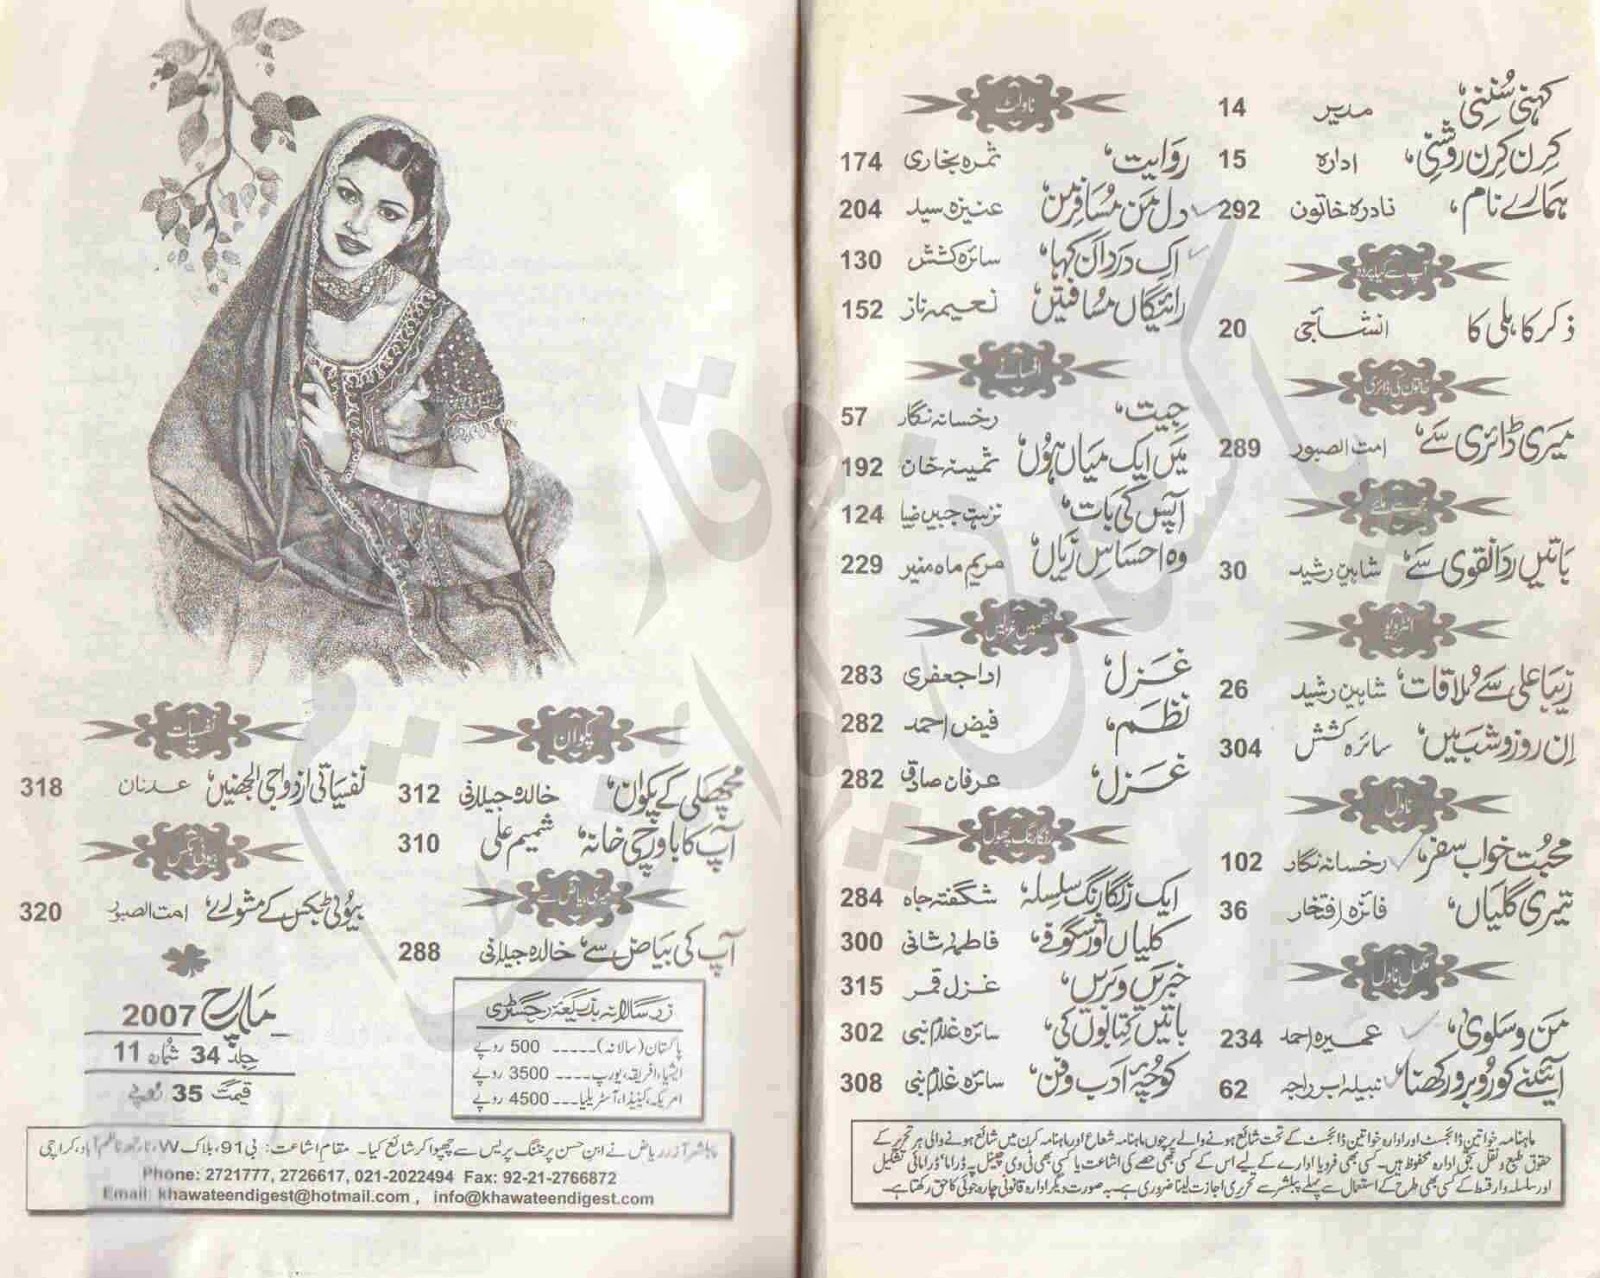 کہنی سُننی، مدیر 14
کِرن کِرن روشنی، ادارہ 15
ہمارے نام، نادرہ خاتون 292
آپ سے کیا پردہ
ذکر کاہلی کا انشاجی 20
خاتون کی ڈائری
میری ڈائری سے، امت الصبور 289
مجھ سے ملیے
باتیں ردا لقوی سے، شاہین رشید 30
انٹرویو
زیبا علی سے مُلاقات، شاہین رشید 26
اِن روز و شب میں، سائرہ کشش 304
ناول
محبت خواب سفر، رخسانہ نگار 102
تیری گلیاں، فائزہ افتخار 36
مکمل ناول
مَن و سلویٰ، عمیرہ احمد 234
آئینے کو رُوبرو رکھنا، نبیلہ ابر راجہ 62
ناولٹ
روایت، ثمرہ بخاری 174
دل مَن مُسافرِ مَن، عنیزہ سید 204
اک درد ان کہا، سائرہ کشش 130
رائیگاں مُسافتیں، نعیمہ ناز 152
افسانے
جیت، رخسانہ نگار 57
میں ایک میاں ہُوں، ثمینہ خان 192
آپس کی بات، نزہت جبیں ضیا 124
وہ احساسِ زیاں، مریم ماہ منیر 229
نظمیں غزلیں
غزل، ادا جعفری 283
نظم، فیض احمد 282
غزل، عرفان صادق 282
رنگا رنگ پھول
ایک رنگا رنگ سلسلہ، شگفتہ جاہ 284
کلیاں اور شگوفے، فاطمہ رشانی 300
خبریں وبریں، غزل قمر 315
باتیں کتابوں کی، سائرہ غلام نبی 302
کوچۂ ادب و فن، سائرہ غلام نبی 308
ماہنامہ خواتین ڈائجسٹ اور ادارہ خواتین ڈائجسٹ کے تحت شائع ہونے والے پرچوں ماہنامہ شعاع اور ماہنامہ کرن میں شائع ہونے والی ہر تحریر کے
حقوق طبع و نقل بحق ادارہ محفوظ ہیں۔ کسی بھی فرد یا ادارے کے لیے اس کے کسی بھی حصے کی اشاعت یا کسی بھی ٹی وی چینل پہ ڈراما، ڈرامائی تشکیل
اور سلسلہ وار قسط کے کسی بھی طرح کے استعمال سے پہلے پبلشر سے تحریری اجازت لینا ضروری ہے۔ بہ صورت دیگر ادارہ قانونی چارہ جوئی کا حق رکھتا ہے۔
پکوان
مچھلی کے پکوان، خالدہ جیلانی 312
آپ کا باورچی خانہ، شمیم علی 310
میری بیاض سے
آپ کی بیاض سے، خالدہ جیلانی 288
نفسیات
نفسیاتی ازدواجی الجھنیں، عدنان 318
بیوٹی بکس
بیوٹی بکس کے مشورے، امت الصبور 320
زر سالانہ بذریعہ رجسٹری
پاکستان (سالانہ) ----- 500 روپے
ایشیا، افریقہ، یورپ ---- 3500 روپے
امریکہ، کینیڈا، آسٹریلیا --- 4500 روپے
مارچ 2007
جلد 34 شمارہ 11
قیمت 35 روپے
پبلشر آذر ریاض نے ابن حسن پرنٹنگ پریس سے چھپوا کر شائع کیا۔ مقام اشاعت: بی 91، بلاک W، نارتھ ناظم آباد، کراچی
Phone: 2721777, 2726617, 021-2022494 Fax: 92-21-2766872
Email: khawateendigest@hotmail.com , info@khawateendigest.com